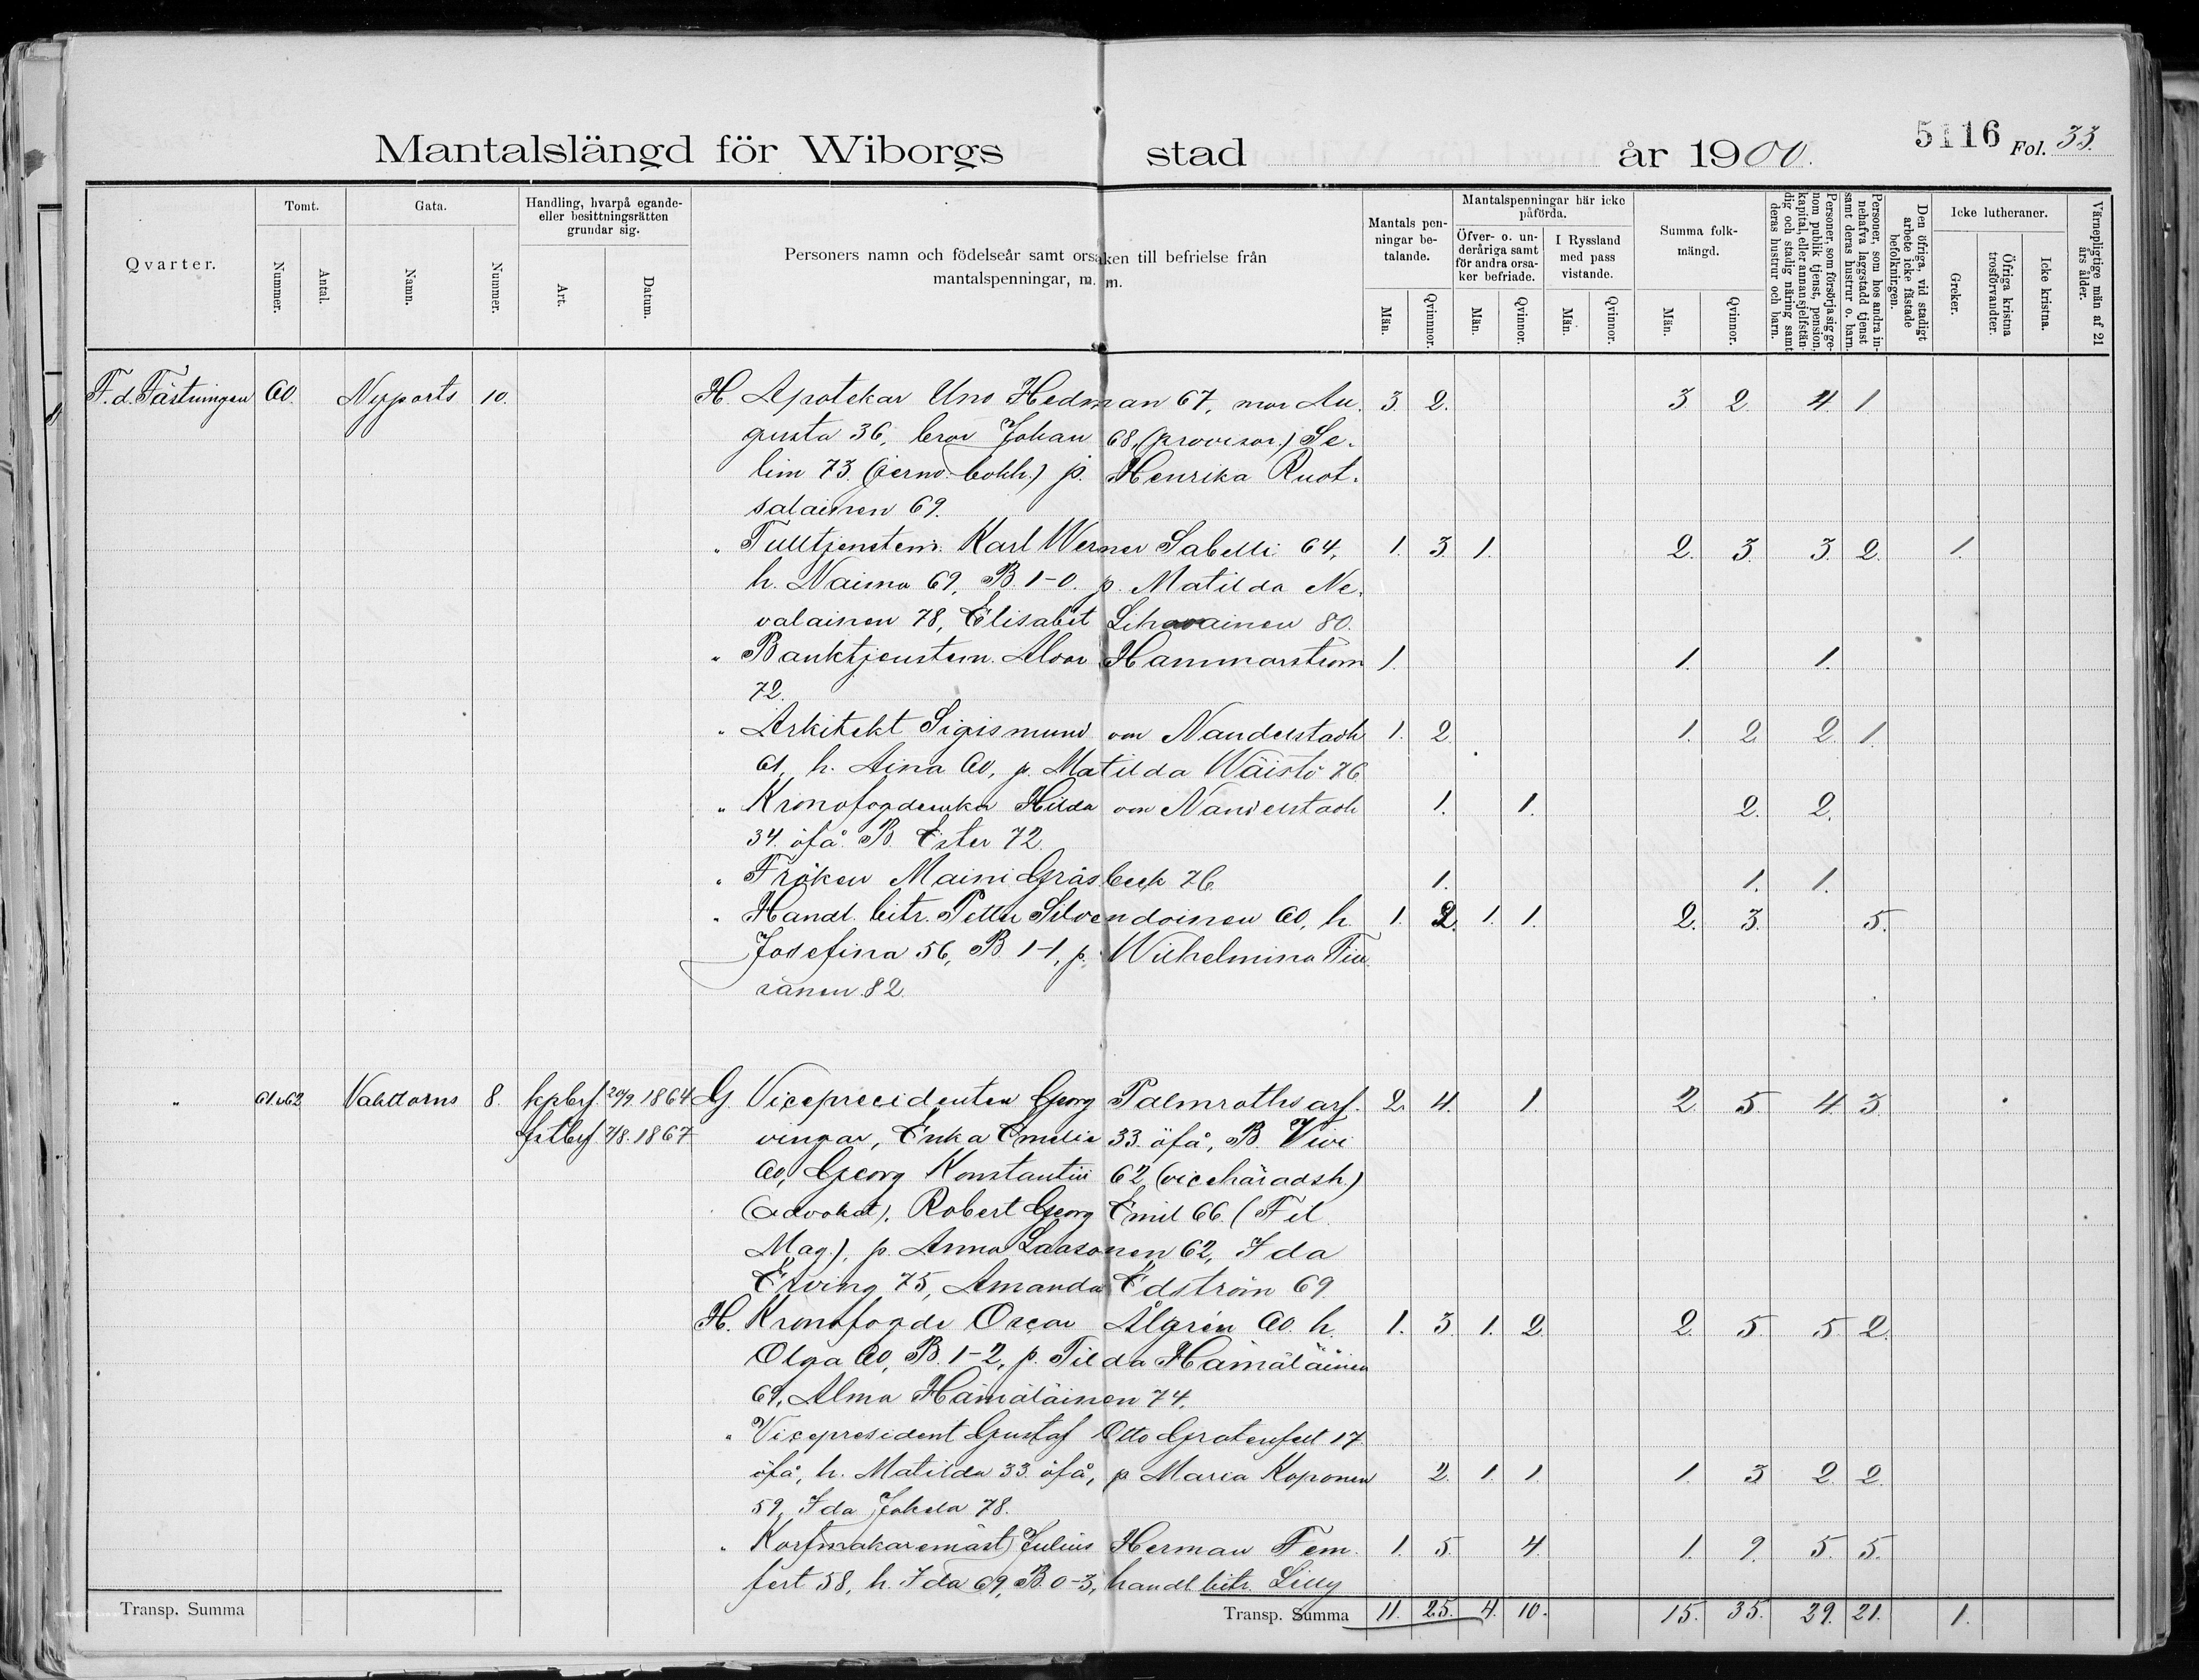 Mantalslängd för Wiborgs stad år 1900. 5116 Fol. 33.
Qvarter.
Tomt.
Nummer.
Antal.
Gata.
Namn.
Nummer.
Handling, hvarpå egande-
eller besittningsrätten
grundar sig.
Art.
Datum.
Personers namn och födelseår samt orsaken till befrielse från
mantalspenningar, m. m.
Mantals pen-
ningar be-
talande.
Män.
Qvinnor.
Mantalspenningar här icke
påförda.
Öfver- o. un-
deråriga samt
för andra orsa-
ker befriade.
Män.
Qvinnor.
I Ryssland
med pass
vistande.
Män.
Qvinnor.
Summa folk-
mängd.
Män.
Qvinnor.
Personer, som försörja sig ge-
nom publik tjenst, pension,
kapital, eller annan sjelfstän-
dig och stadig näring samt
deras hustrur och barn.
Personer, som hos andra in-
nehafva laggstadd tjenst
samt deras hustrur o. barn.
Den öfriga, vid stadigt
arbete icke fästade
befolkningen.
Icke lutheraner.
Greker.
Öfriga kristna
trosförvandter.
Icke kristna.
Värnepligtige män af 21
års ålder.
F. d. Fästningen 60. Nyports 10. H. Apotekar Uno Hedman 67, mor Au- 3. 2. 3 2. 4 1
gusta 36, bror Johan 68, (provisor.) Se-
lim 73. (jernv. bokh.) p. Henrika Ruot-
salainen 69.
" Tulltjenstem. Karl Werner Sabelli 64, 1. 3. 1. 2. 3. 3. 2. 1.
h. Naima 69, B. 1-0. p. Matilda Ne-
valainen 78, Elisabet Lihavainen 80.
" Banktjenstem. Alvar Hammarström 1. 1. 1.
72.
" Arkitekt Sigismund von Nandelstadh 1. 2 1. 2. 2. 1.
61, h. Aina 60, p. Matilda Wäistö 76
" Kronofogdeenka Hilda von Nandelstadh 1. 1. 2. 2.
34. öfå. B. Ester 72.
" Fröken Maini Gråsbeck 76 1. 1. 1.
" Handl. bitr. Petter Silvendoinen 60, h. 1. 2. 1. 1. 2. 3. 5.
Josefina 56, B 1-1, p. Wilhelmina Tiu-
ränen. 82.
" 61 o 62 Vahttorns 8. kpbrf. 20/9. 1864 G. Vicepresidenten Georg Palmroths arf- 2. 4. 1. 2. 5. 4 3.
fstbrf 7/8. 1867 vingar, Enka Emelie 33. öfå, B. Vivi
60, Georg Konstantin 62, (vicehäradsh.)
(Advokat), Robert Georg Emil 66. (Fil.
Mag.), p. Anna Laasonen 62, Ida
Erving 75, Amanda Edström 69
H. Kronofogde Oscar Ålgrén 60. h. 1. 3. 1. 2. 2. 5. 5. 2.
Olga 60, B. 1-2, p. Tilda Hämäläinen
69, Alma Hämäläinen 74.
" Vicepresident Gustaf Otto Grotenfelt 17
öfå, h. Matilda 33. öfå, p Maria Koponen 2. 1. 1. 1. 3 2. 2.
59, Ida Jokela 78.
" Korfmakaremäst Julius Herman Tem- 1. 5. 4. 1. 9. 5. 5.
fert 58, h. Ida 69, B. 0-3, handl. bitr. Lilly
Transp. Summa Transp. Summa 11. 25. 4. 10. 15. 35. 29. 21. 1.